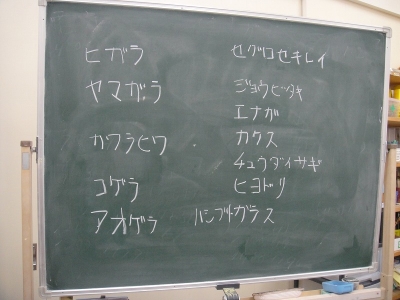 ヒガラ
ヤマガラ
カワラヒワ
コゲラ
アオゲラ
セグロセキレイ
ジョウビタキ
エナガ
カケス
チュウダイサギ
ヒヨドリ
ハシブトガラス